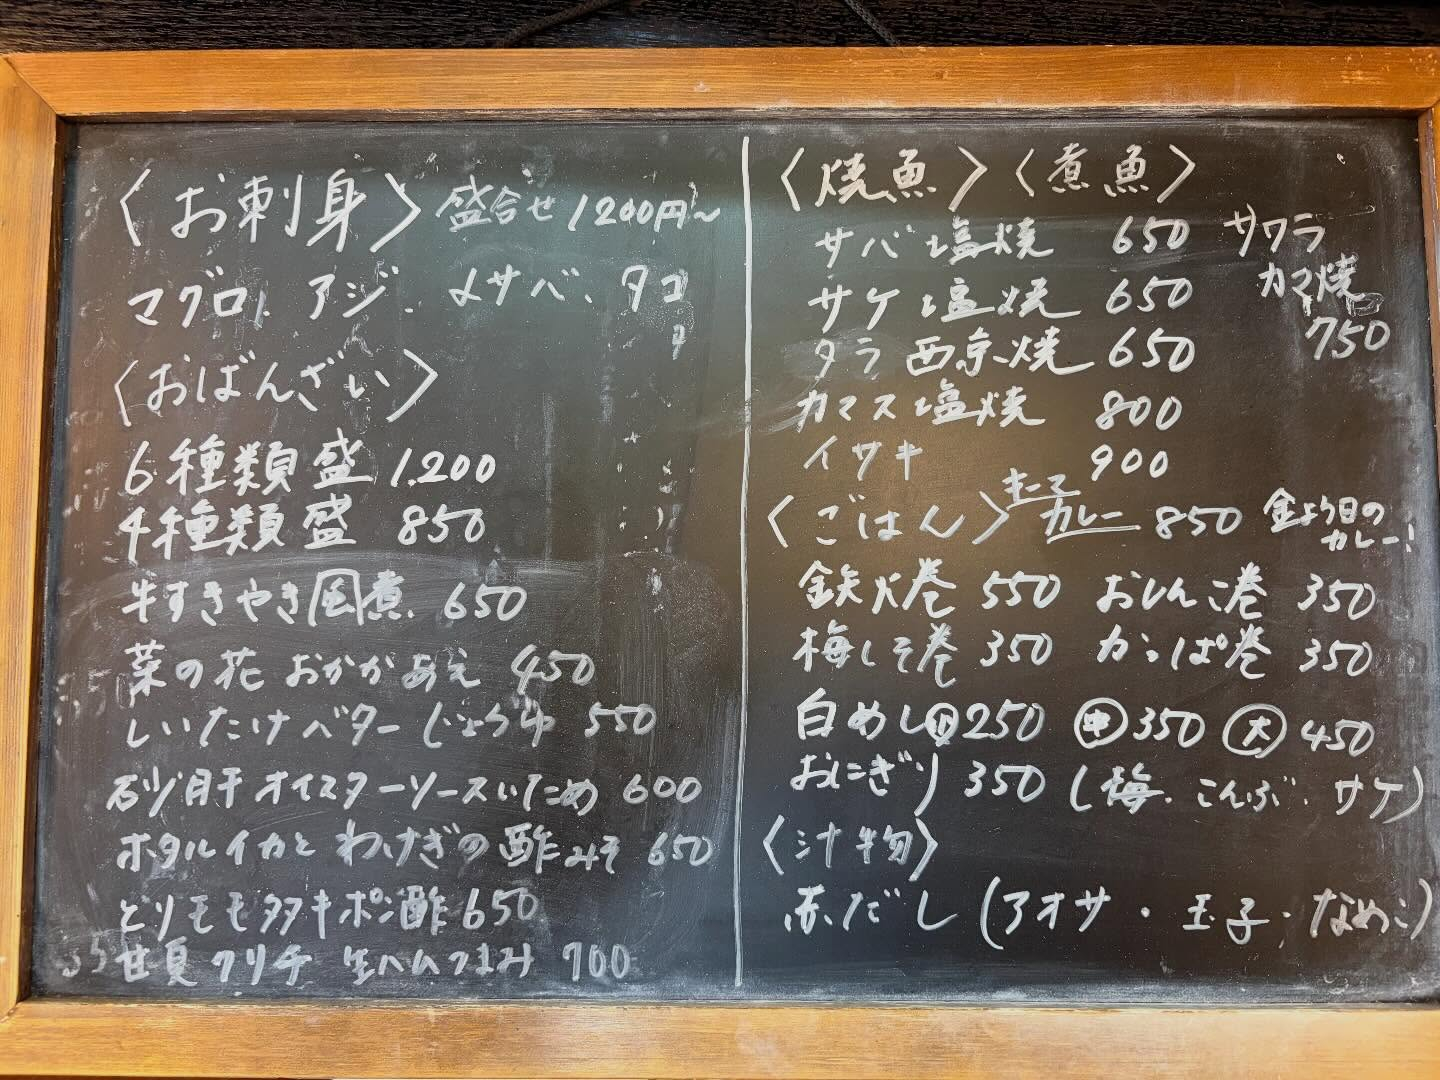 〈お刺身〉盛合せ 1200円～
マグロ. アジ. 〆サバ. タコ
〈おばんざい〉
6種類盛 1.200
4種類盛 850
牛すきやき風煮 650
菜の花 おかかあえ 450
しいたけバターじょうゆ 550
砂肝オイスターソースいため 600
ホタルイカとわけぎの酢みそ 650
とりモモタタキポン酢 650
甘夏 クリチ 生ハムつまみ 700
〈焼魚〉〈煮魚〉
サバ塩焼 650
サケ塩焼 650
タラ西京焼 650
カマス塩焼 800
イサキ 900
サワラ
カマ焼
750
〈ごはん〉キーマカレー 850 金よう日のカレー!
鉄火巻 550 おしんこ巻 350
梅しそ巻 350 かっぱ巻 350
白めし㊙小 250 ㊥ 350 大 450
おにぎり 350 (梅. こんぶ. サケ)
〈汁物〉
赤だし (アオサ・玉子・なめこ)